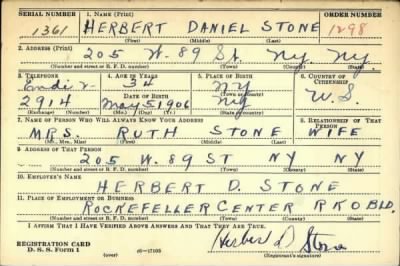 SERIAL NUMBER 1. NAME (Print) ORDER NUMBER
1361 HERBERT DANIEL STONE 1298
(First) (Middle) (Last)
2. ADDRESS (Print)
205 W. 89 St. NY. NY.
(Number and street or R. F. D. number) (Town) (County) (State)
3. TELEPHONE 4. AGE IN YEARS 5. PLACE OF BIRTH 6. COUNTRY OF CITIZENSHIP
34 NY
(Town or county)
DATE OF BIRTH
2914 May 5 1906 NY U.S.
(Exchange) (Number) (Mo.) (Day) (Yr.) (State or country)
7. NAME OF PERSON WHO WILL ALWAYS KNOW YOUR ADDRESS 8. RELATIONSHIP OF THAT PERSON
MRS. RUTH STONE WIFE
(Mr., Mrs., Miss) (First) (Middle) (Last)
9. ADDRESS OF THAT PERSON
205 W. 89 ST NY NY
(Number and street or R. F. D. number) (Town) (County) (State)
10. EMPLOYER'S NAME
HERBERT D. STONE
11. PLACE OF EMPLOYMENT OR BUSINESS
ROCKEFELLER CENTER RKO BLD.
(Number and street or R. F. D. number) (Town) (County) (State)
I AFFIRM THAT I HAVE VERIFIED ABOVE ANSWERS AND THAT THEY ARE TRUE.
REGISTRATION CARD
D. S. S. FORM 1 (over) 16—17105 Herbert D Stone
(Registrant's signature)